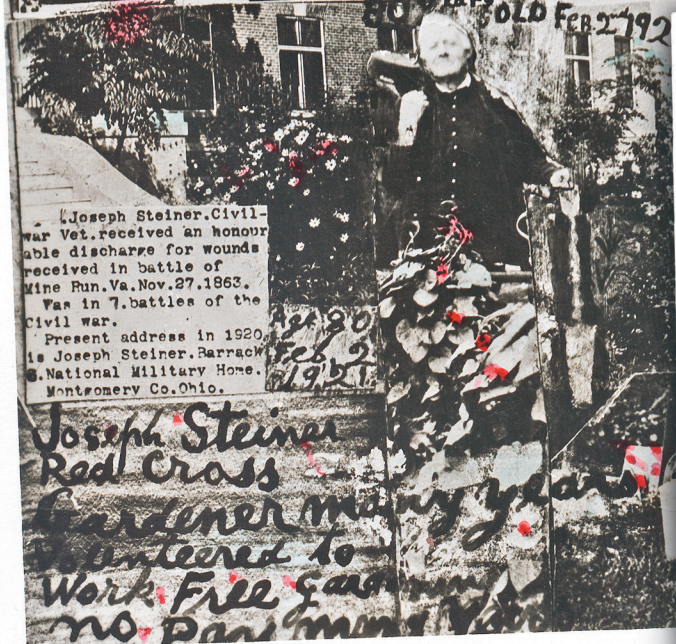 80 Years OLD Feb 2 192
Joseph Steiner.Civil-
war Vet.received an honour
able discharge for wounds
received in battle of
Mine Run.Va.Nov.27.1863.
Was in 7.battles of the
Civil war.
Present address in 1920
is Joseph Steiner.Barrack
6.National Military Home.
Montgomery Co.Ohio.
80
Feb 2
1921
Joseph Steiner
Red Cross
Gardener many years
Volunteered to
Work Free
no Pay many